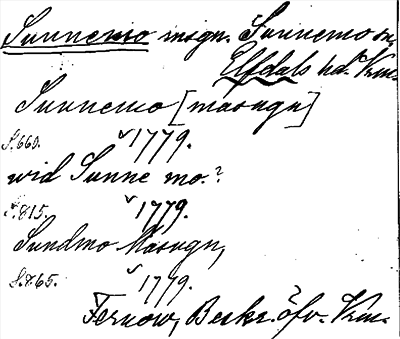 Sunnemo msgn. Sunnemo sn.
Elfdals hd. Vrm.
Sunnemo [masugn]
S.660. v 1779.
wid Sunne mo.?
S.815. v 1779.
Sundmo Masugn,
S.865. v 1779.
Fernow, Beskr. öfv. Vrm.